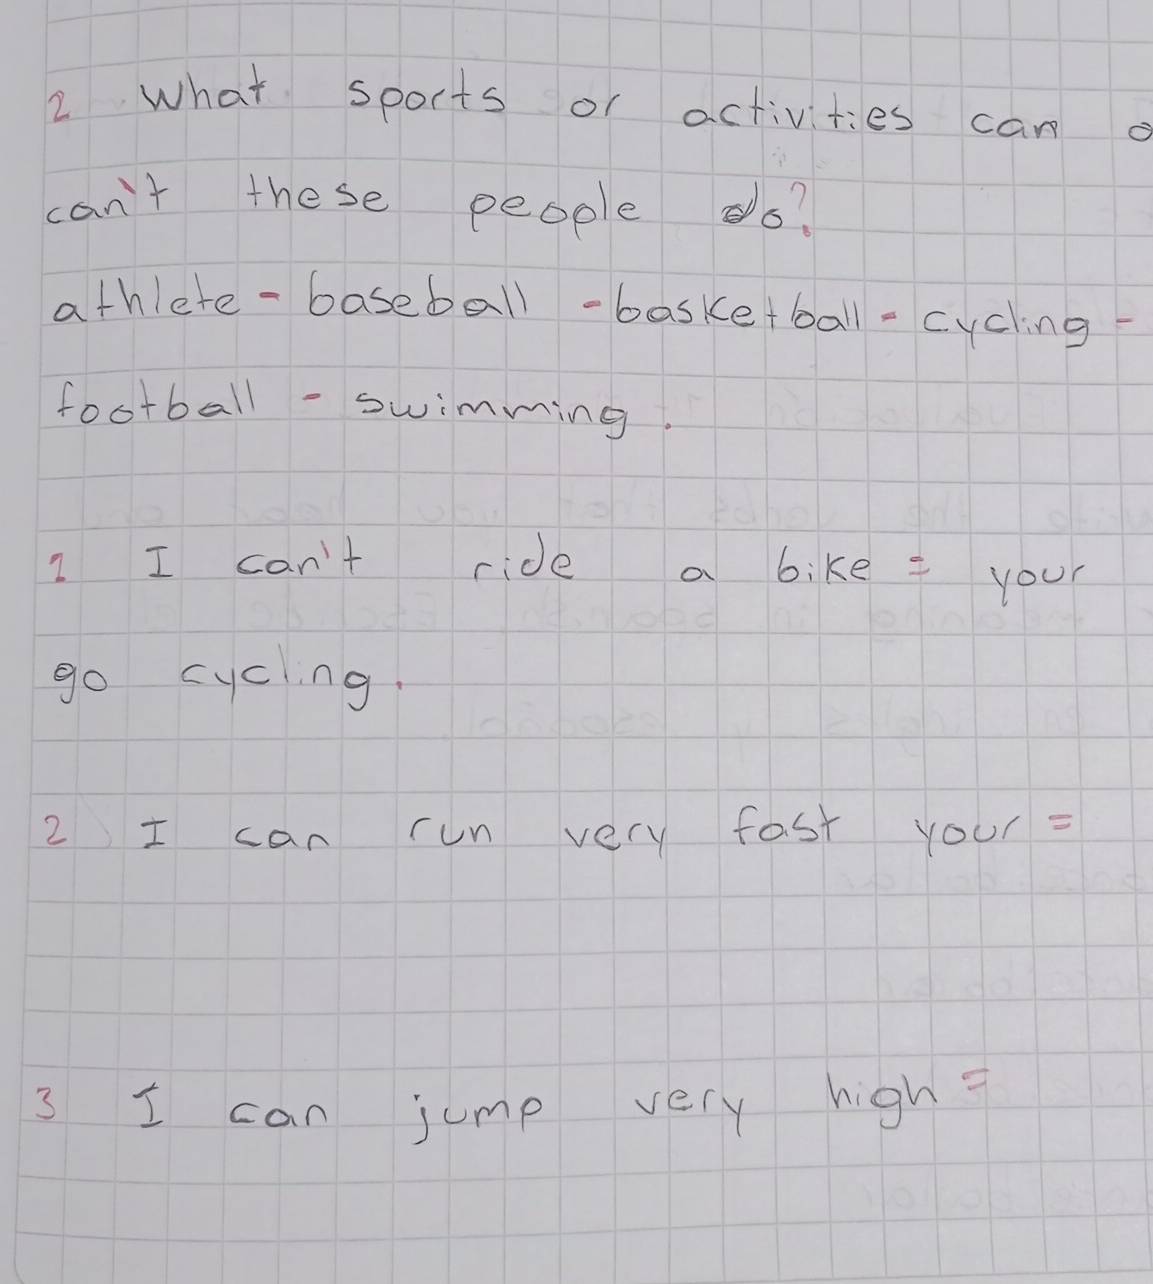 2 What sports or activities can o
can't these people do?
athlete - baseball - basketball - cycling -
football - swimming.
1 I can't ride a bike = your
go cycling.
2 I can run very fast your =
3 I can jump very high =